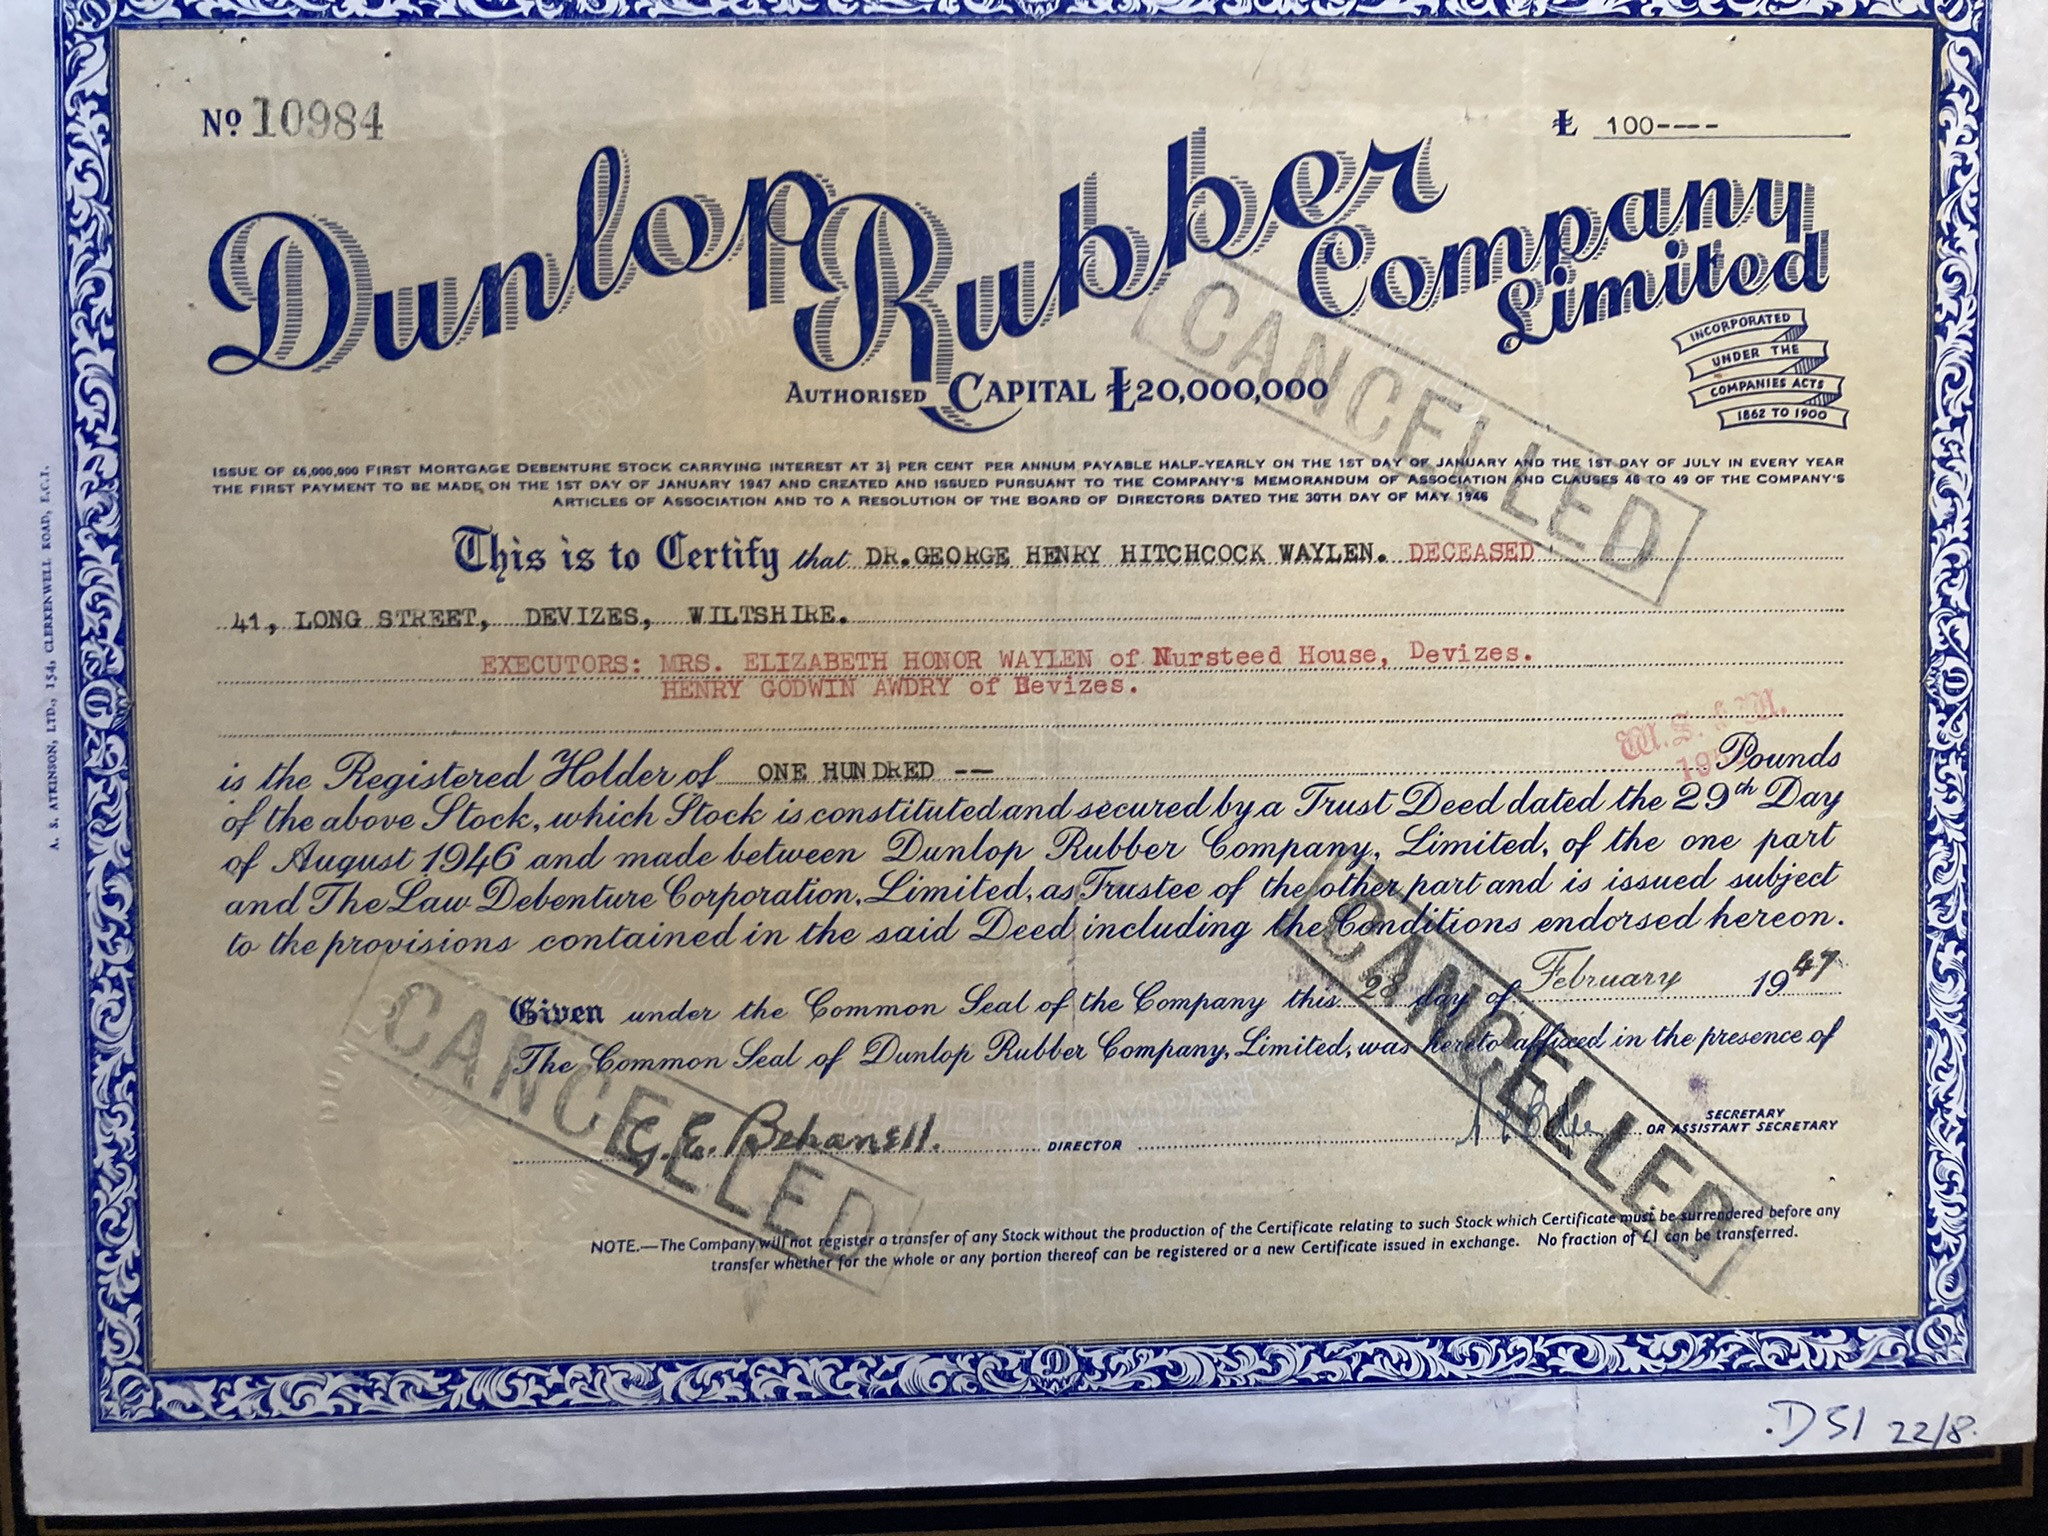 Nº 10984
£ 100----
Dunlop Rubber Company Limited
INCORPORATED
UNDER THE
COMPANIES ACTS
1862 TO 1900
AUTHORISED CAPITAL £20,000,000
ISSUE OF £6,000,000 FIRST MORTGAGE DEBENTURE STOCK CARRYING INTEREST AT 3½ PER CENT PER ANNUM PAYABLE HALF-YEARLY ON THE 1ST DAY OF JANUARY AND THE 1ST DAY OF JULY IN EVERY YEAR
THE FIRST PAYMENT TO BE MADE ON THE 1ST DAY OF JANUARY 1947 AND CREATED AND ISSUED PURSUANT TO THE COMPANY'S MEMORANDUM OF ASSOCIATION AND CLAUSES 46 TO 49 OF THE COMPANY'S
ARTICLES OF ASSOCIATION AND TO A RESOLUTION OF THE BOARD OF DIRECTORS DATED THE 30TH DAY OF MAY 1946
CANCELLED
This is to Certify that DR.GEORGE HENRY HITCHCOCK WAYLEN. DECEASED
41, LONG STREET, DEVIZES, WILTSHIRE.
EXECUTORS: MRS. ELIZABETH HONOR WAYLEN of Nursteed House, Devizes.
HENRY GODWIN AWDRY of Devizes.
is the Registered Holder of ONE HUNDRED -- Pounds
of the above Stock, which Stock is constituted and secured by a Trust Deed dated the 29th Day
of August 1946 and made between Dunlop Rubber Company, Limited, of the one part
and The Law Debenture Corporation, Limited, as Trustee of the other part and is issued subject
to the provisions contained in the said Deed including the Conditions endorsed hereon.
Given under the Common Seal of the Company this 28 day of February 1947
The Common Seal of Dunlop Rubber Company, Limited, was hereto affixed in the presence of
CANCELLED
CANCELLED
G. E. Beharrell. DIRECTOR
SECRETARY
OR ASSISTANT SECRETARY
NOTE.—The Company will not register a transfer of any Stock without the production of the Certificate relating to such Stock which Certificate must be surrendered before any
transfer whether for the whole or any portion thereof can be registered or a new Certificate issued in exchange. No fraction of £1 can be transferred.
A. S. ATKINSON, LTD., 154, CLERKENWELL ROAD, E.C.1.
D51 22/8.